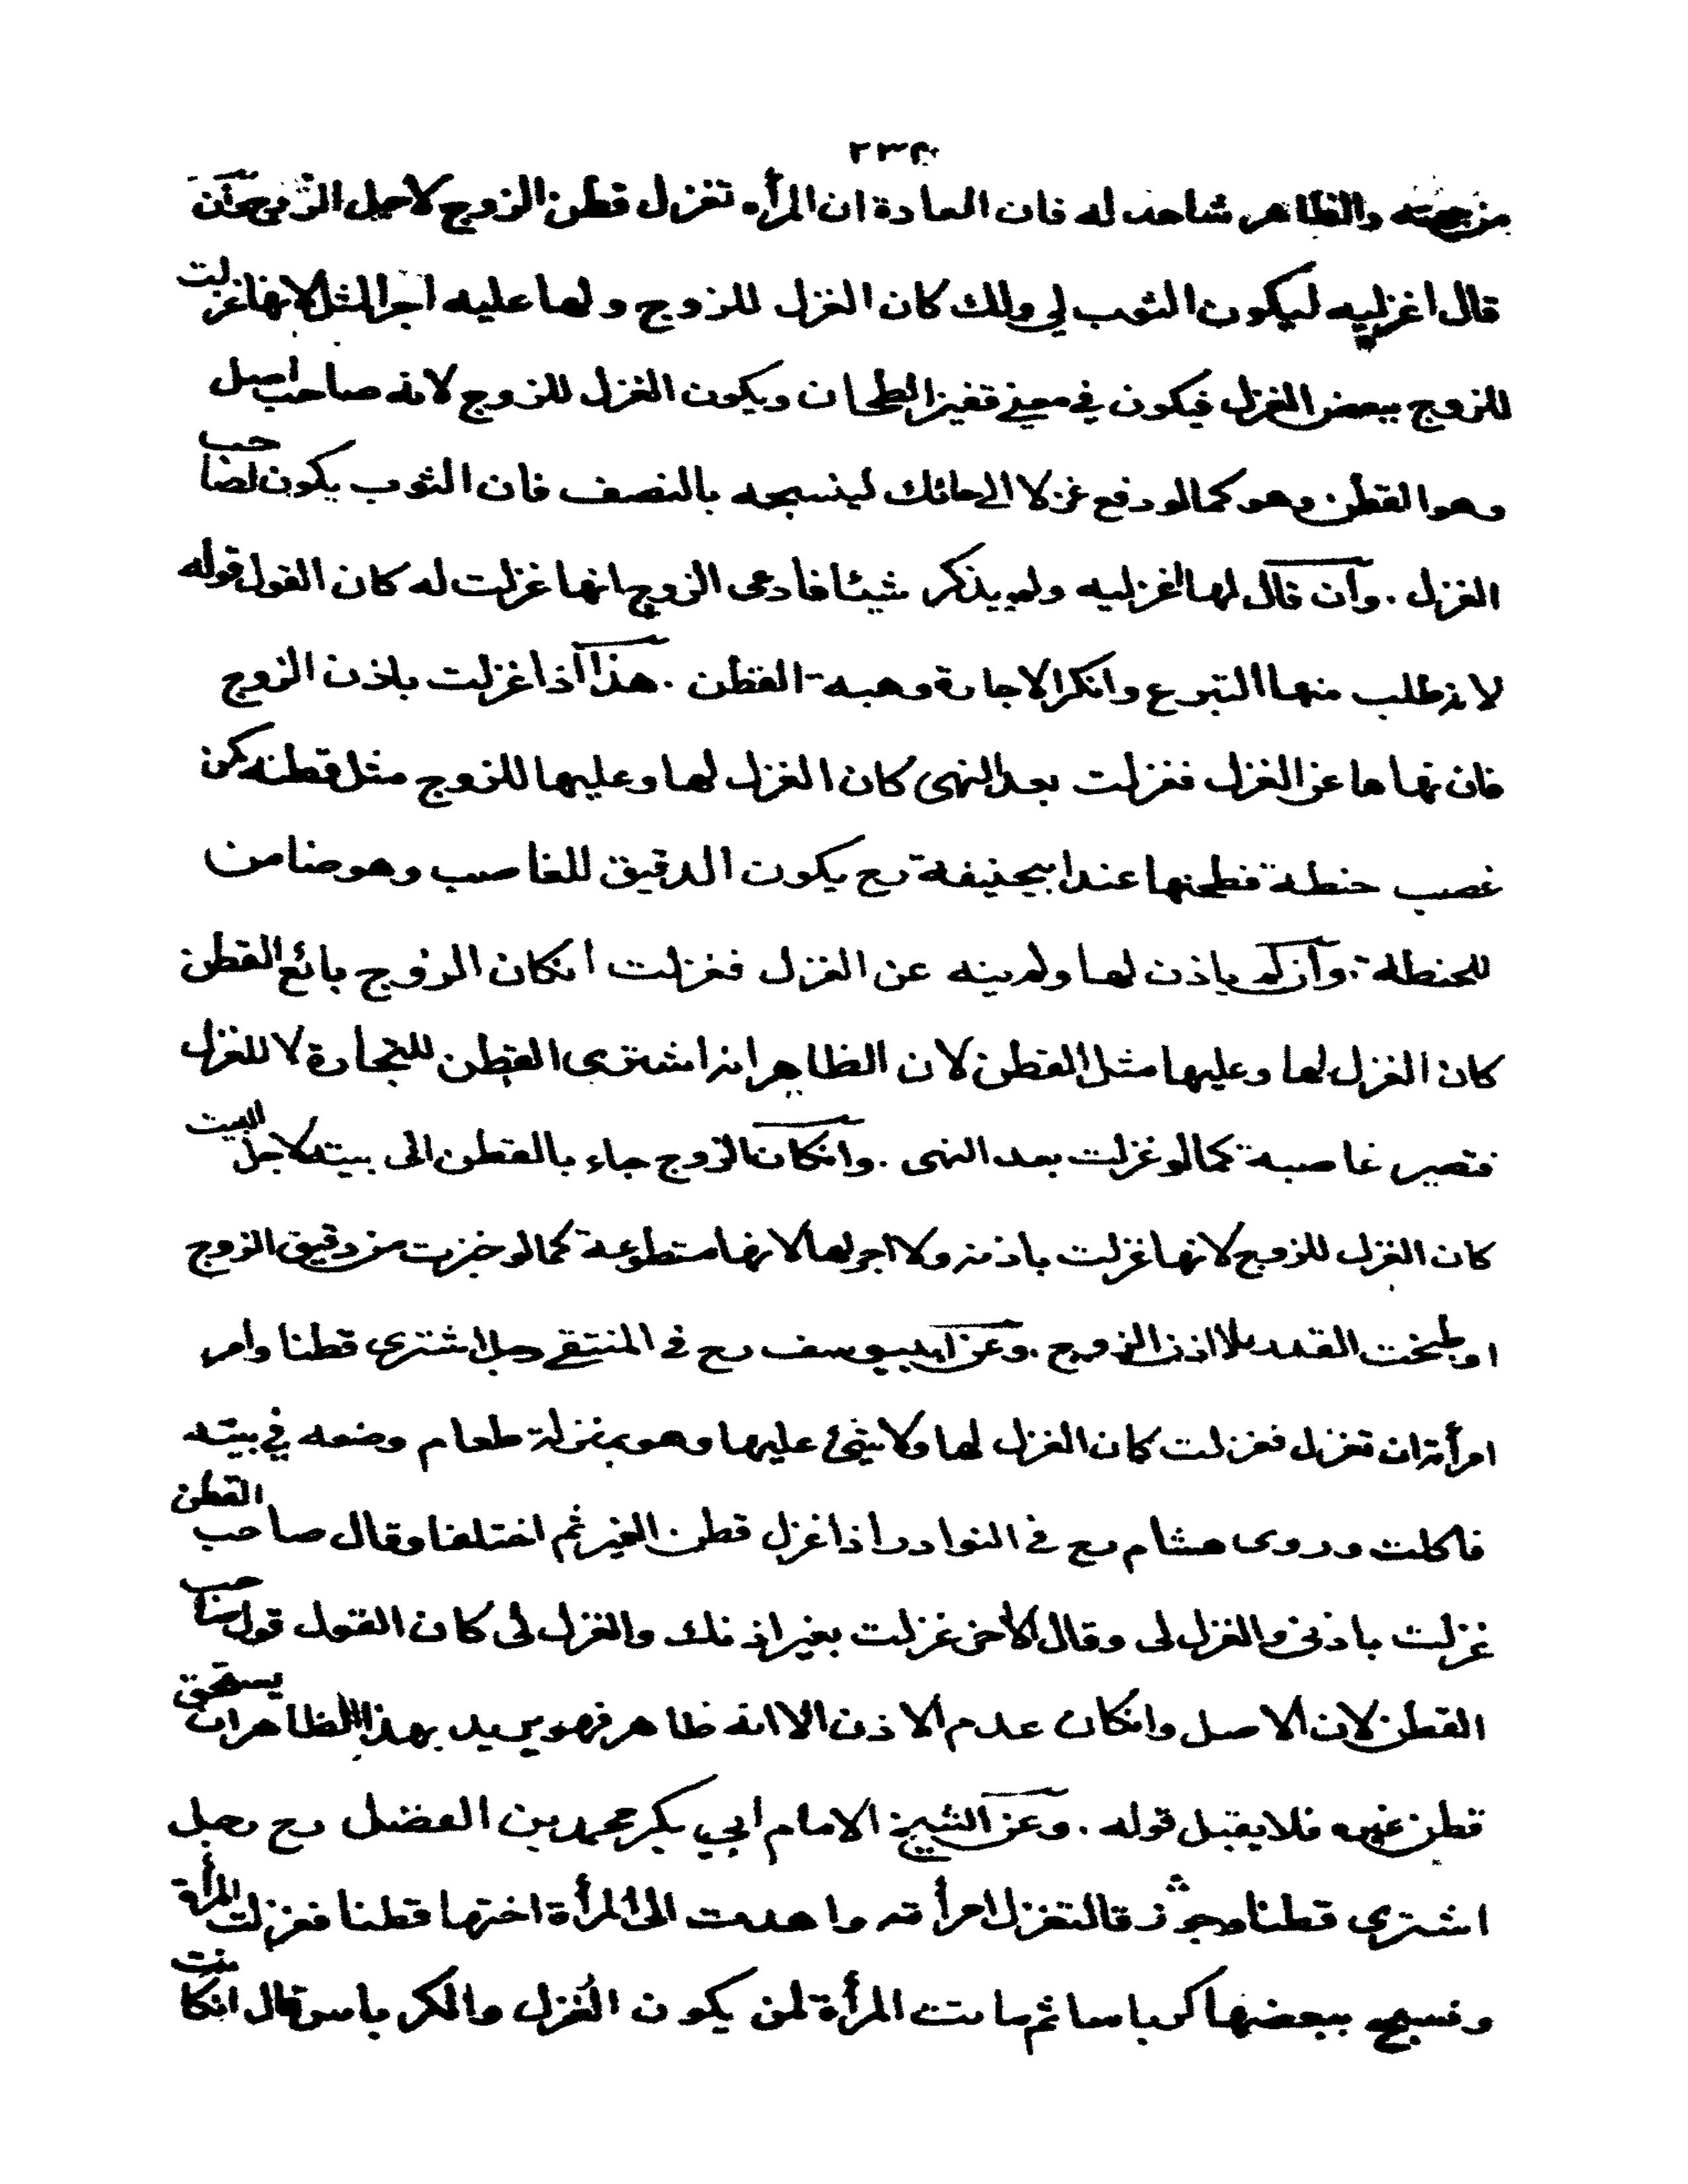 من جهته والظاهر شاهد له فان العادة ان المرأه تغزل قطن الزوج لاجل الزوج وان
قال اغزليه ليكون الثوب لي ولك كان الغزل للزوج ولها عليه اجر المثل لانها غزلت
للزوج ببعض الغزل فيكون في معنى قفيز الطحان ويكون الغزل للزوج لانه صاحب اصل
وهو القطن وهو كما لو دفع غزلا الى حائك لينسجه بالنصف فان الثوب يكون لصاحب
الغزل . وان قال لها اغزليه ولم يذكر شيئا فادعى الزوج انها غزلت له كان القول قوله
لانه طلب منها التبرع وانكر الاجارة وهبة القطن . هذا اذا غزلت باذن الزوج
فان نهاها عن الغزل فغزلت بعد النهى كان الغزل لها وعليها للزوج مثل قطنه كمن
غصب حنطة فطحنها عند ابيحنيفة رح يكون الدقيق للغاصب وهو ضامن
للحنطة . وان لم ياذن لها ولم ينه عن الغزل فغزلت انكان الزوج بائع القطن
كان الغزل لها وعليها مثل القطن لان الظاهر انه اشترى القطن للتجارة لا للغزل
فتصير غاصبة كما لو غزلت بعد النهى . وانكان الزوج جاء بالقطن الى بيته لاجل البيت
كان الغزل للزوج لانها غزلت باذنه ولا اجر لها لانها متطوعة كما لو خبزت من دقيق الزوج
او طبخت القدر بلا اذن الزوج . وعن ابييوسف رح في المنتقى رجل اشترى قطنا وامر
امرأته ان تغزل فغزلت كان الغزل لها ولا شئ عليها وهو بمنزلة طعام وضعه في بيته
فاكلت وروى هشام رح في النوادر اذا غزل قطن الغير ثم اختلفا وقال صاحب القطن
غزلت باذنى والغزل لى وقال الآخر غزلت بغير اذنك والغزل لى كان القول قول صاحب
القطن لان الاصل وانكان عدم الاذن الا انه ظاهر فهو يريد بهذا الظاهر ان يستحق
قطن غيره فلا يقبل قوله . وعن الشيخ الامام ابي بكر محمد بن الفضل رح رجل
اشترى قطنا لتغزل امرأته واهدت الى المرأة اختها قطنا فغزلت المرأة
ونسج ببعضها كرباسا ثم ماتت المرأة لمن يكون الغزل والكرباس قال انكانت